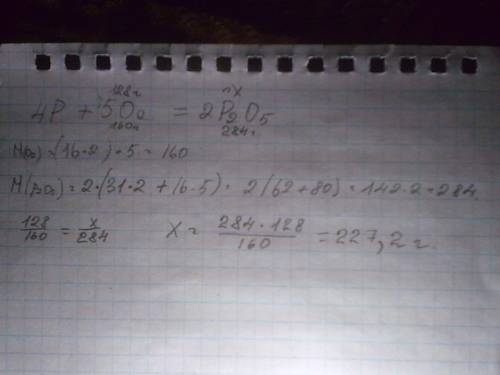 128г mX
4P + 5O₂ = 2P₂O₅
160г 284г
M(O₂) = (16·2)·5 = 160
M(P₂O₅) = 2·(31·2 + 16·5) = 2(62 + 80) = 142·2 = 284.
128/160 = x/284 X = 284·128/160 = 227,2 г.